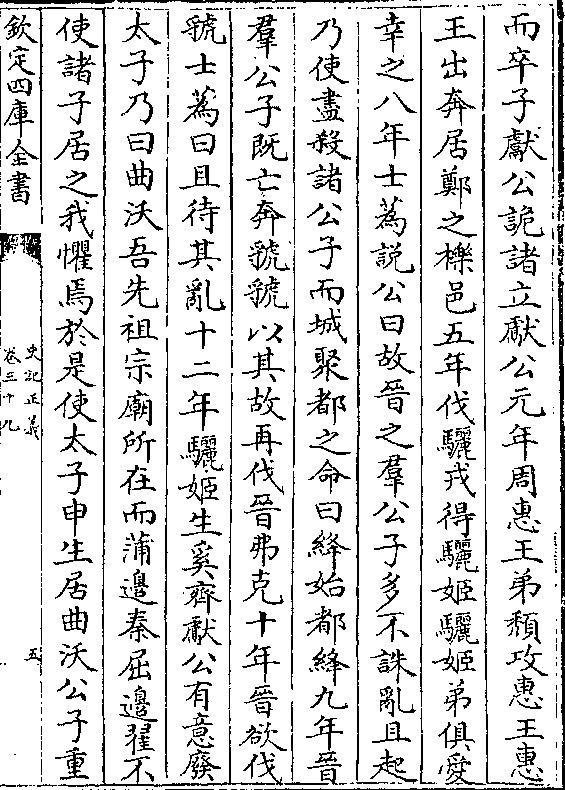 而卒子獻公詭諸立獻公元年周惠王弟頽攻惠王惠
王出奔居鄭之櫟邑五年伐驪戎得驪姬驪姬弟俱愛
幸之八年士蒍説公曰故晉之羣公子多不誅亂且起
乃使盡殺諸公子而城聚都之命曰絳始都絳九年晉
羣公子既亡奔虢虢以其故再伐晉弗克十年晉欲伐
虢士蒍曰且待其亂十二年驪姬生奚齊獻公有意廢
太子乃曰曲沃吾先祖宗廟所在而蒲邊秦屈邊翟不
使諸子居之我懼焉於是使太子申生居曲沃公子重
欽定四庫全書
史記正義
卷三十九
五